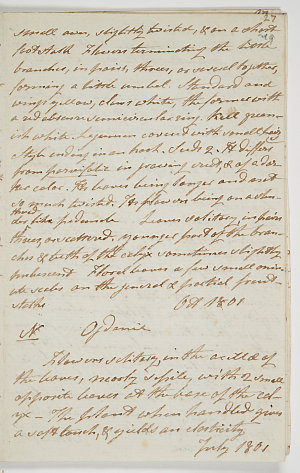 27
small oven, slightly twisted, & on a short
footstalk. Flowers terminating the little
branches, in pairs, threes, or several together,
forming a little umbel. Standard and
wings yellow, claws white, the former with
a red obscure semicircular ring. Keel green-
ish white. Legumen covered with small hairs
style ending in an hook. Seeds 2. It differs
from parvifolia in growing erect, & of a dar-
ker color. Its leaves being longer and not
so much twisted. Its flowers being on a shor-
ter, like peduncle. Leaves solitary, in pairs
threes, or scattered, younger part of the bran-
ches & teeth of the calyx sometimes slightly
pubescent. Floral leaves a few small
scales on the general & partial fruit
stalks
Oct 1801
N
Flowers solitary, in the axillæ of
the leaves, nearly sessile, with 2 small
opposite leaves at the base of the cal-
yx — The plant when handled gives
a soft touch, & yields an elasticity.
July 1801